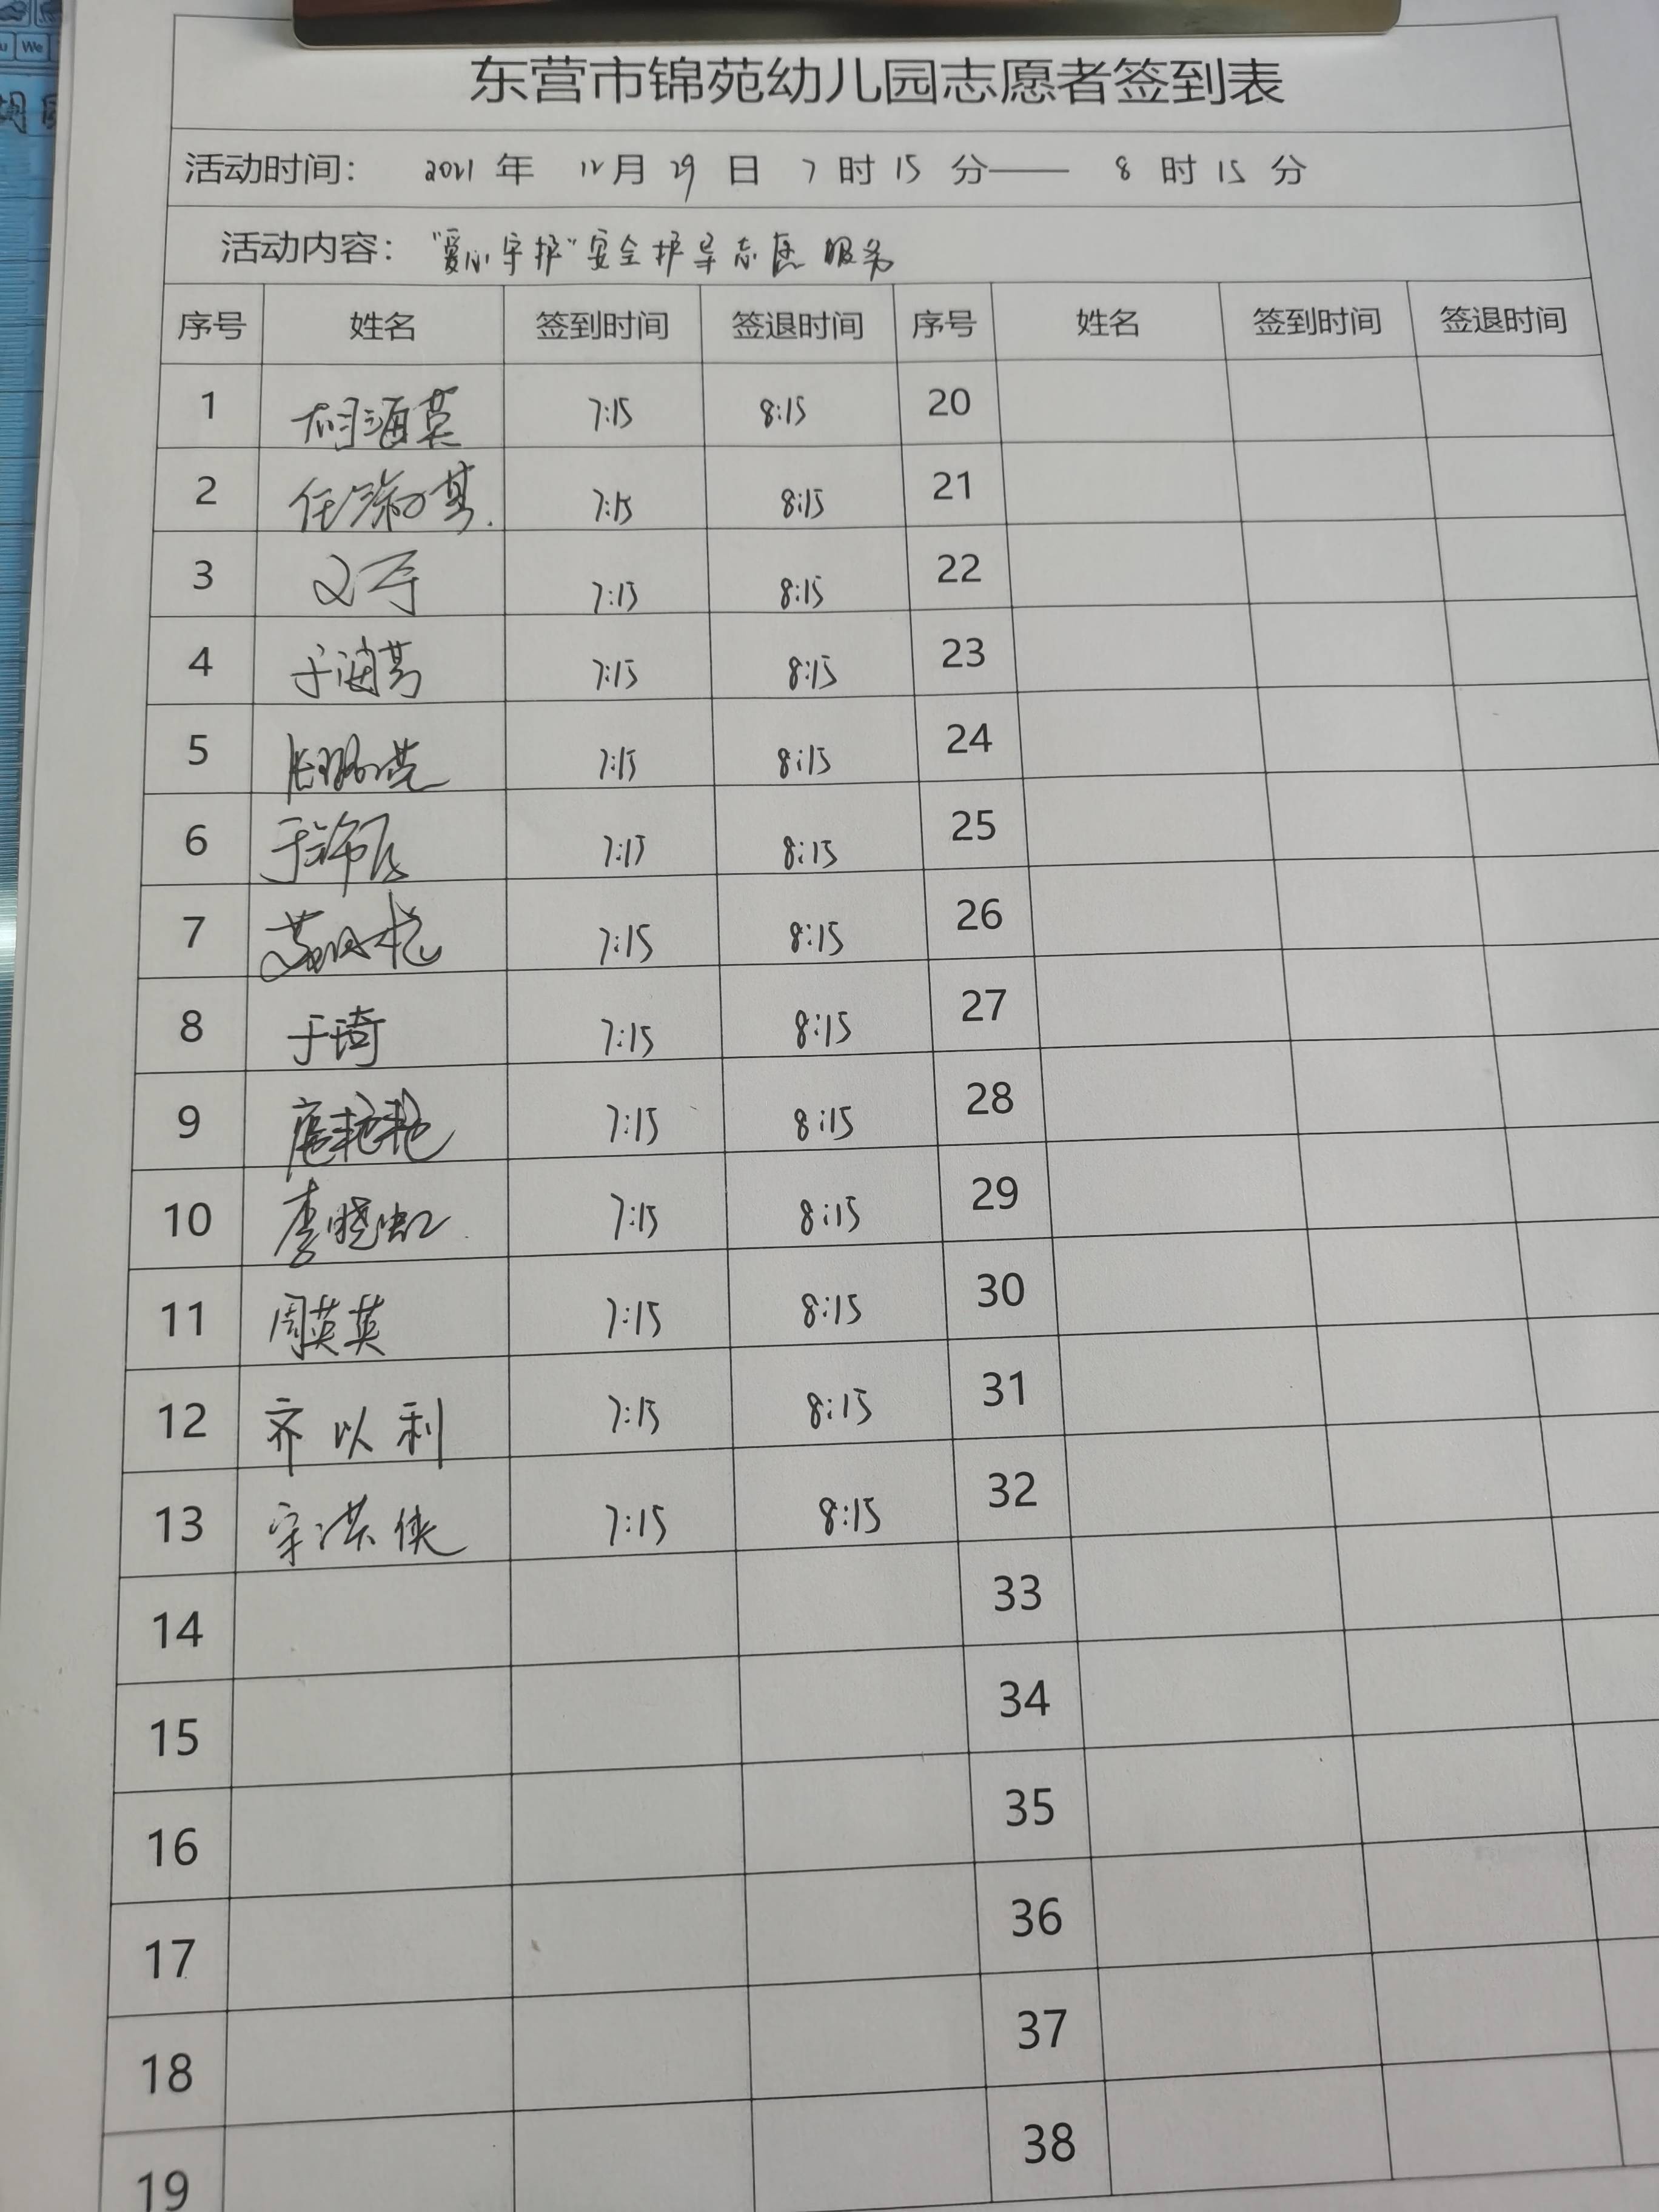 We
东营市锦苑幼儿园志愿者签到表
活动时间: 2021 年 12 月 29 日 7 时 15 分—— 8 时 15 分
活动内容: "爱心守护"安全护导志愿服务
序号 姓名 签到时间 签退时间 序号 姓名 签到时间 签退时间
1 胡海英 7:15 8:15 20
2 任 7:15 8:15 21
3 7:15 8:15 22
4 于海芳 7:15 8:15 23
5 7:15 8:15 24
6 于 7:15 8:15 25
7 7:15 8:15 26
8 于琦 7:15 8:15 27
9 扈艳艳 7:15 8:15 28
10 李晓虹 7:15 8:15 29
11 周英英 7:15 8:15 30
12 齐以利 7:15 8:15 31
13 宋洪侠 7:15 8:15 32
14 33
15 34
16 35
17 36
18 37
19 38